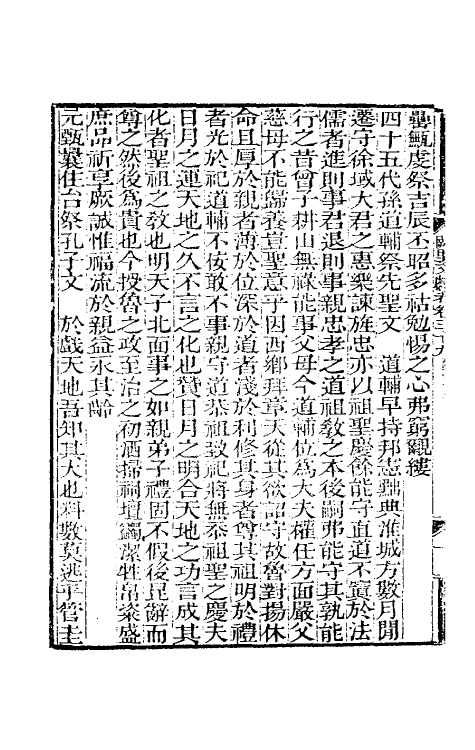 罍甒虔祭吉辰丕昭多祜勉惕之心弗窮覼縷
四十五代孫道輔祭先聖文　道輔早持邦憲黼典淮城方數月開
遷守徐域大君之惠樂諫旌忠亦以祖聖慶餘能守直道不寘於法
儒者進則事君退則事親忠孝之道祖敎之本後嗣弗能守其孰能
行之昔曾子耕山無祿能事父母今道輔位爲大夫權任方面嚴父
慈母不能歸養豈聖意乎因西鄉拜章天從其欲詔守故魯對揚休
命且厚於親者薄於位深於道者淺於利修其身者尊其祖明於禮
者光於祀道輔不佞敢不事親守道恭祖致祀將無忝祖聖之慶夫
日月之運天地之久不言之化也贊日月之明合天地之功言成其
化者聖祖之敎也明天子北面事之如親弟子禮固不假後昆辭而
尊之然後爲貴也今授魯之政至治之初洒掃祠壇蠲潔牲帛粢盛
庶品祈享厥誠惟福流於親益永其齡
元甄曩住台祭孔子文　於戲天地吾知其大也料數莫逃乎管圭